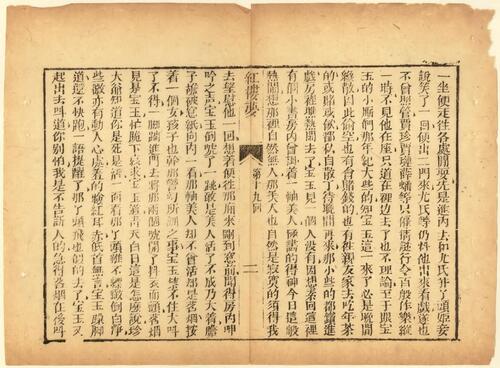 一坐便走徃各處閒耍先是進内去和尤氏并丫頭姬妾
說笑了一回便出二門來尤氏等仍料他出來看戲遂也
不曾照管賈珍賈璉薛蟠等只顧猜謎行令百般作樂縱
一時不見他在座只道在裡边去了也不理論至于跟寶
玉的小厮們那年紀大些的知寶玉這一來了必是晚間
纔散因此偷空也有會賭錢的也有徃親友家去吃年茶
的或賭或飲都私自散了待晚間再來那小些的都鑽進
戲房裡瞧熱閙去了寶玉見一個人没有因想素日這裡
有個小書房内曾掛着一軸美人極畫的得神今日這般
熱閙想那裡自然無人那美人也自然是寂寞的須得我
紅樓夢 第十九囘 二
去望慰他一回想着便徃那廂來剛到窓前聞得房内呻
吟之聲寶玉倒唬了一跳敢是美人活了不成乃大着膽
子䑛破窓紙向内一看那軸美人却不曾活却是茗烟按
着一個女孩子也幹那警幻所訓之事寶玉禁不住大呌
了不得一脚踹進門去將那兩個唬開了抖衣而顫茗烟
見是寶玉忙跪下哀求寶玉道青天白日這是怎麽說珍
大爺知道你是死是活一面看那丫頭雖不標緻倒白淨
些微亦有動人心處羞的臉紅耳赤低首無言寶玉跺脚
道還不快跑一語提醒了那丫頭飛也似的去了寶玉又
赶出去呌道你別怕我是不告訴人的急得茗烟在後呌